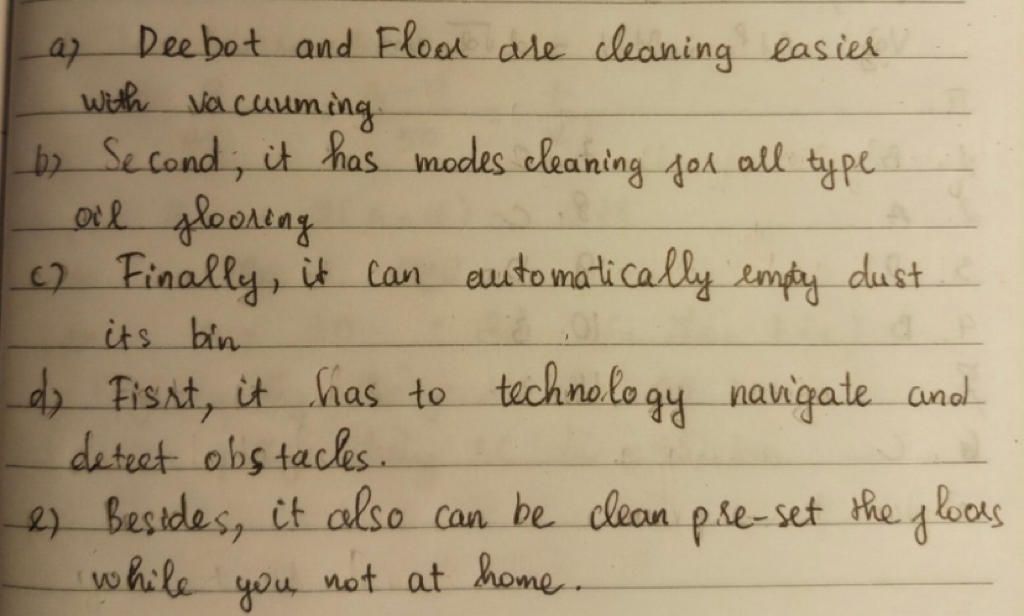 a) Deebot and Floor are cleaning easier
with vacuuming
b) Second, it has modes cleaning for all type
oil flooring
c) Finally, it can automatically empty dust
its bin
d) Fisrt, it has to technology navigate and
detect obstacles.
e) Besides, it also can be clean pre-set the floors
while you not at home.